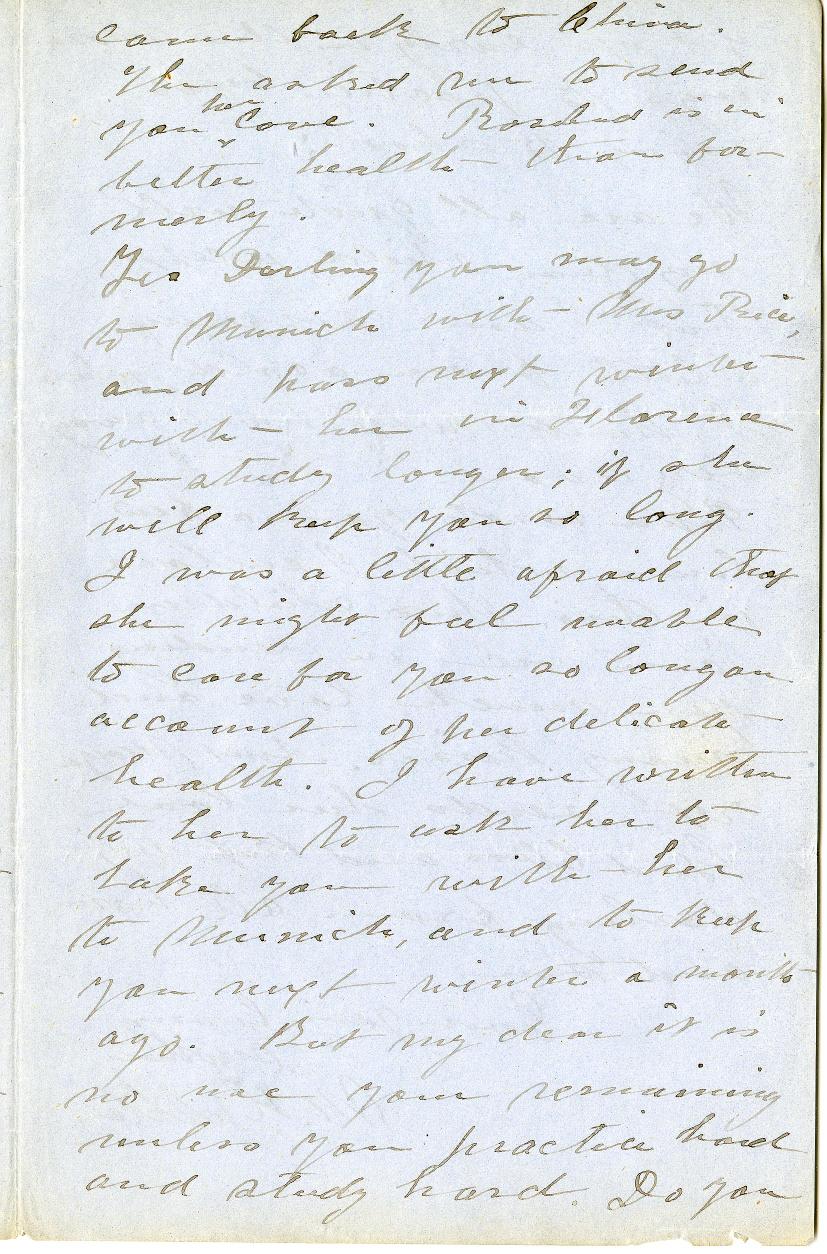 came back to China.
She asked me to send
you her love. Rosebud is in
better health than for-
merly.
Yes Darling you may go
to Munich with Mrs Rice,
and pass next winter
with her in Florence
to study longer; if she
will keep you so long.
I was a little afraid that
she might feel unable
to care for you so long on
account of her delicate
health. I have written
to her to ask her to
take you with her
to Munich, and to keep
you next winter a month
ago. But my dear it is
no use your remaining
unless you practice hard
and study hard. Do you